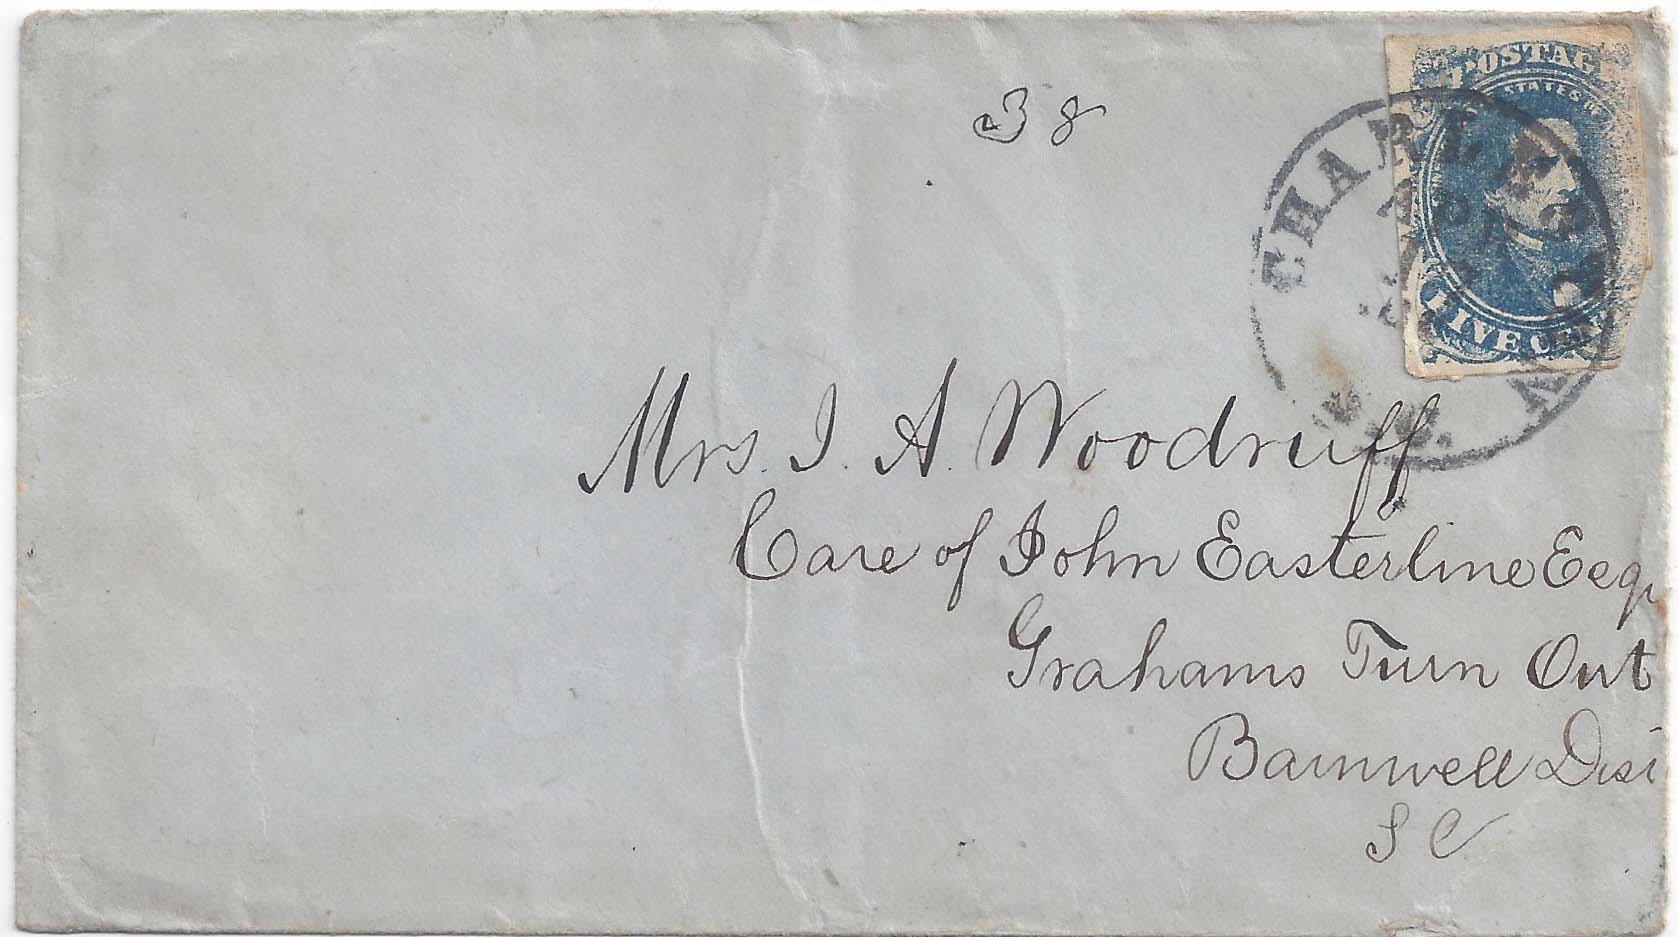 38
POSTAGE
STATES OF
FIVE CEN
CHARLESTON
S.C.
Mrs. J. A. Woodruff
Care of John Easterline Esqr
Grahams Turn Out
Barnwell Dist
S C